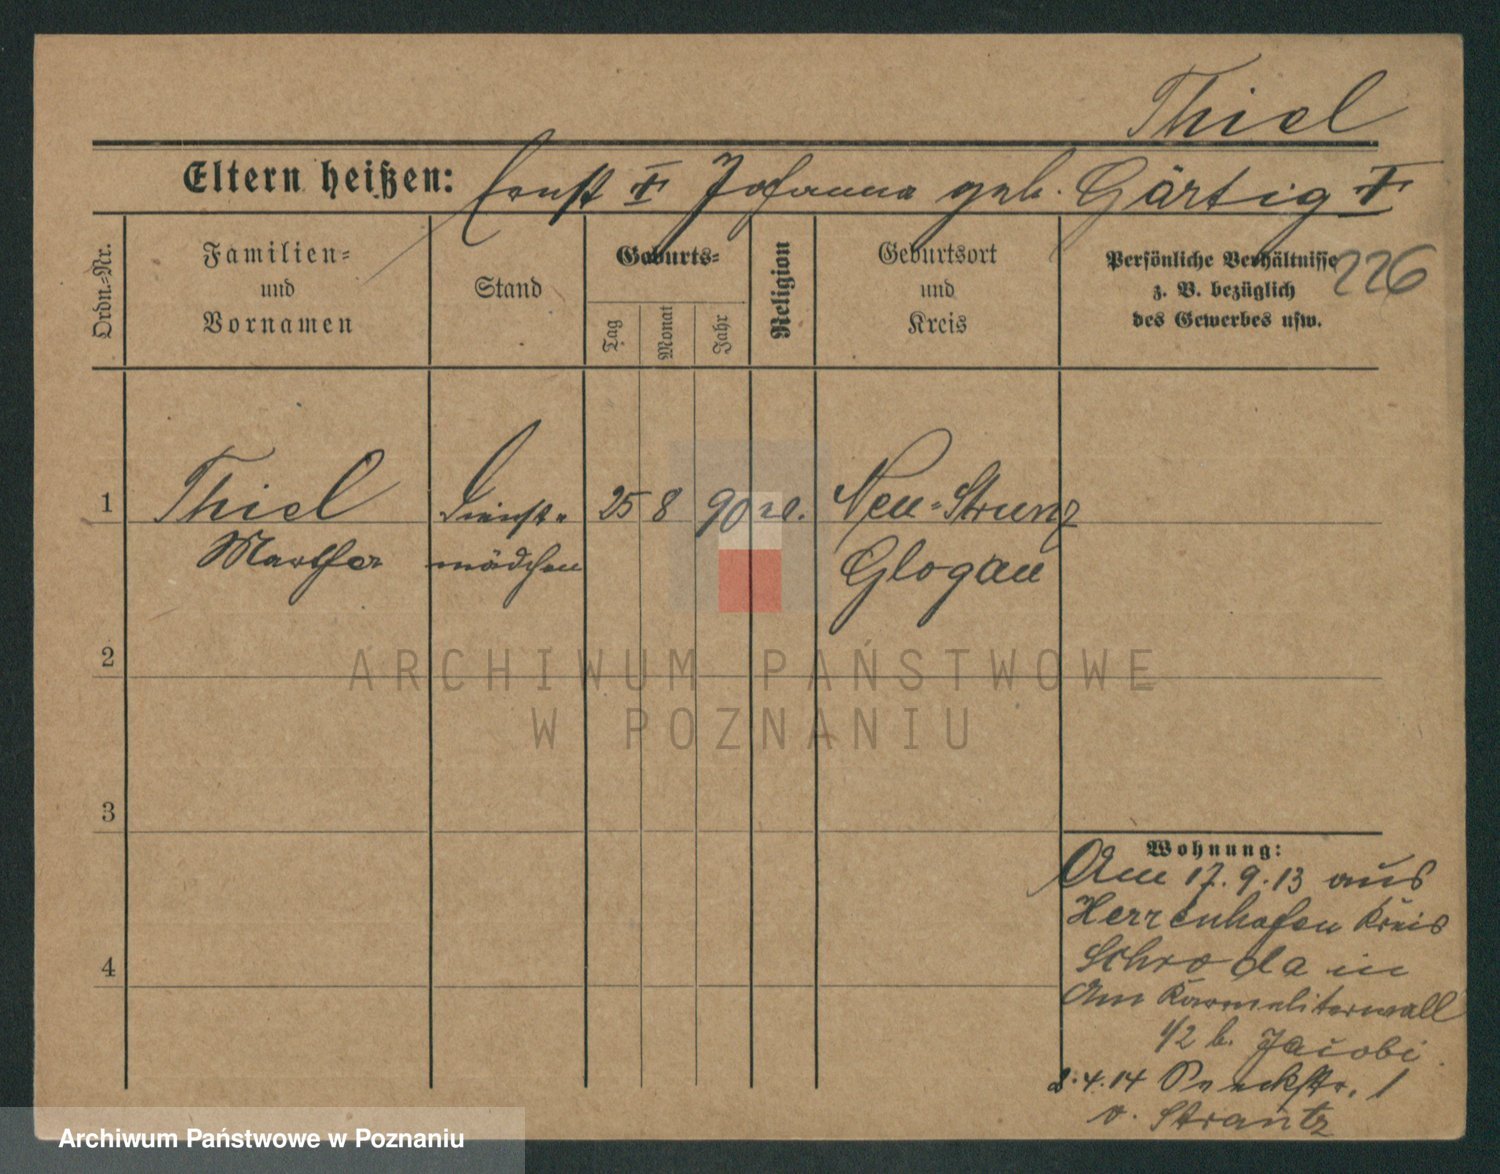 Thiel
Eltern heißen: Ernst † Johanna geb. Gärtig †
Ordn.-Nr.
Familien-
und
Vornamen
Stand
Geburts-
Tag
Monat
Jahr
Religion
Geburtsort
und
Kreis
Persönliche Verhältnisse
z. B. bezüglich
des Gewerbes usw.
226
1 Thiel Dienst- 25 8 90 Neu-Strunz
Martha mädchen Glogau
2
3
4
Wohnung:
Am 17.9.13 aus
Herrenhofen Kreis
Schroda in
Am Karmeliterwall
1/2 b. Jacobi
2.4.14 1
v. Strantz
ARCHIWUM PAŃSTWOWE
W POZNANIU
Archiwum Państwowe w Poznaniu